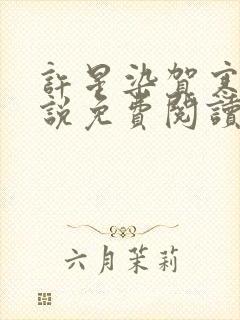 許星染賀寒
說免費閱讀
六月茉莉